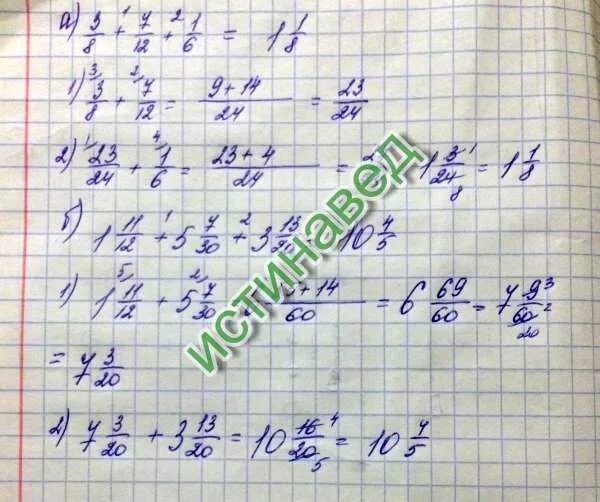 а) 3/8 + 7/12 + 1/6 = 1 1/8
1) 3/8 + 7/12 = (9 + 14)/24 = 23/24
2) 23/24 + 1/6 = (23 + 4)/24 = 1 3/24 = 1 1/8
б) 1 11/12 + 5 7/30 + 3 13/20 10 4/5
1) 1 11/12 + 5 7/30 + 14/60 = 6 69/60 = 7 9/60
= 7 3/20
2) 7 3/20 + 3 13/20 = 10 16/20 = 10 4/5
истинавед